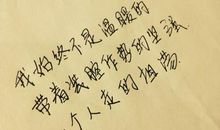 我始终不是温暖的
带着装腔作势的坚强
个人走的坦荡